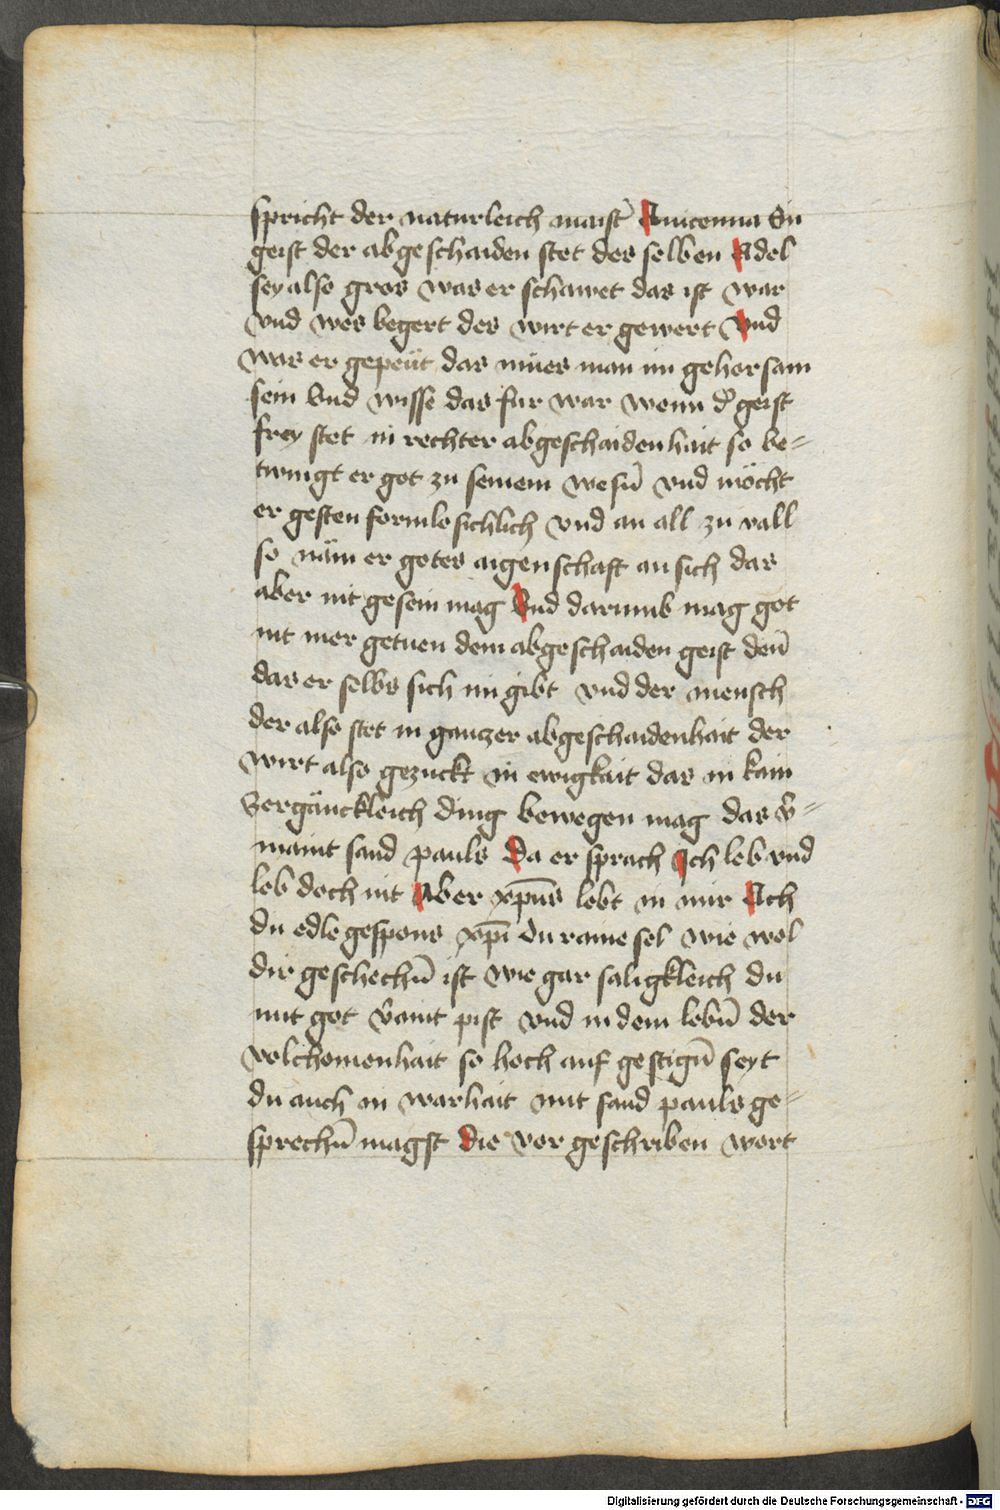 spricht der naturleich maist̄ Auicenna Ein
geist der abgeschaiden stet des selben Adel
sey also gros was er schawet das ist war
vnd wes begert des wirt er gewert vnd
was er gepeüt das mües man im gehorsam
sein Vnd wisse das fur war wenn d̄ geist
frey stet in rechter abgeschaidenhait so be-
twingt er got zu seinem wesn̄ vnd möcht
er gesten formlosichlich vnd an all zu vall
so näm er gotes aigenschaft an sich das
aber nit gesein mag Vnd darumb mag got
nit mer getuen dem abgeschaiden geist den̄
das er selbs sich im gibt vnd der mensch
der also stet in ganczer abgeschaidenhait der
wirt also gezuckt in ewigkait das in kain
Vergänckleich ding bewegen mag das v̄-
maint sand pauls Da er sprach Ich leb vnd
leb doch nit Aber xp̄us lebt in mir Ach
du edle gespons xp̄i du raine sel wie wol
dir geschechn̄ ist wie gar saligkleich du
mit got v̄aint pist vnd in dem lebn̄ der
volchomenhait so hoch auf gestign̄ seyt
du auch in warhait mit sand pauls ge-
sprechn̄ magst die vor geschriben wort
Digitalisierung gefördert durch die Deutsche Forschungsgemeinschaft - DFG